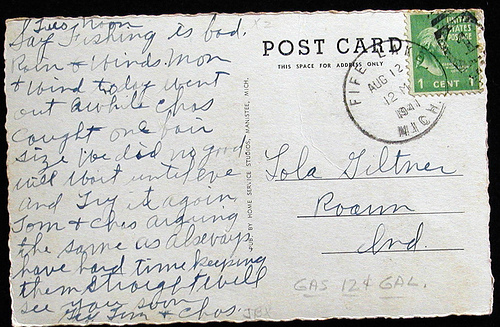 Tues Noon
Say Fishing is bad.
Rain & Winds. Mon
& Wind today Went
out awhile Chas
caught one fair
size We did no good
will wait until eve
and Try it again
Tom & Chas arguing
the same as always
have hard time keeping
them straight will
see you soon
Tom & Chas.
POST CARD
THIS SPACE FOR ADDRESS ONLY
UNITED
STATES
POSTAGE
1 CENT
FIFE
AUG 12
12 M
1941
MICH
BY HOME SERVICE STUDIOS, MANISTEE, MICH.
Lola Giltner
Roann
Ind.
GAS 12¢ GAL.